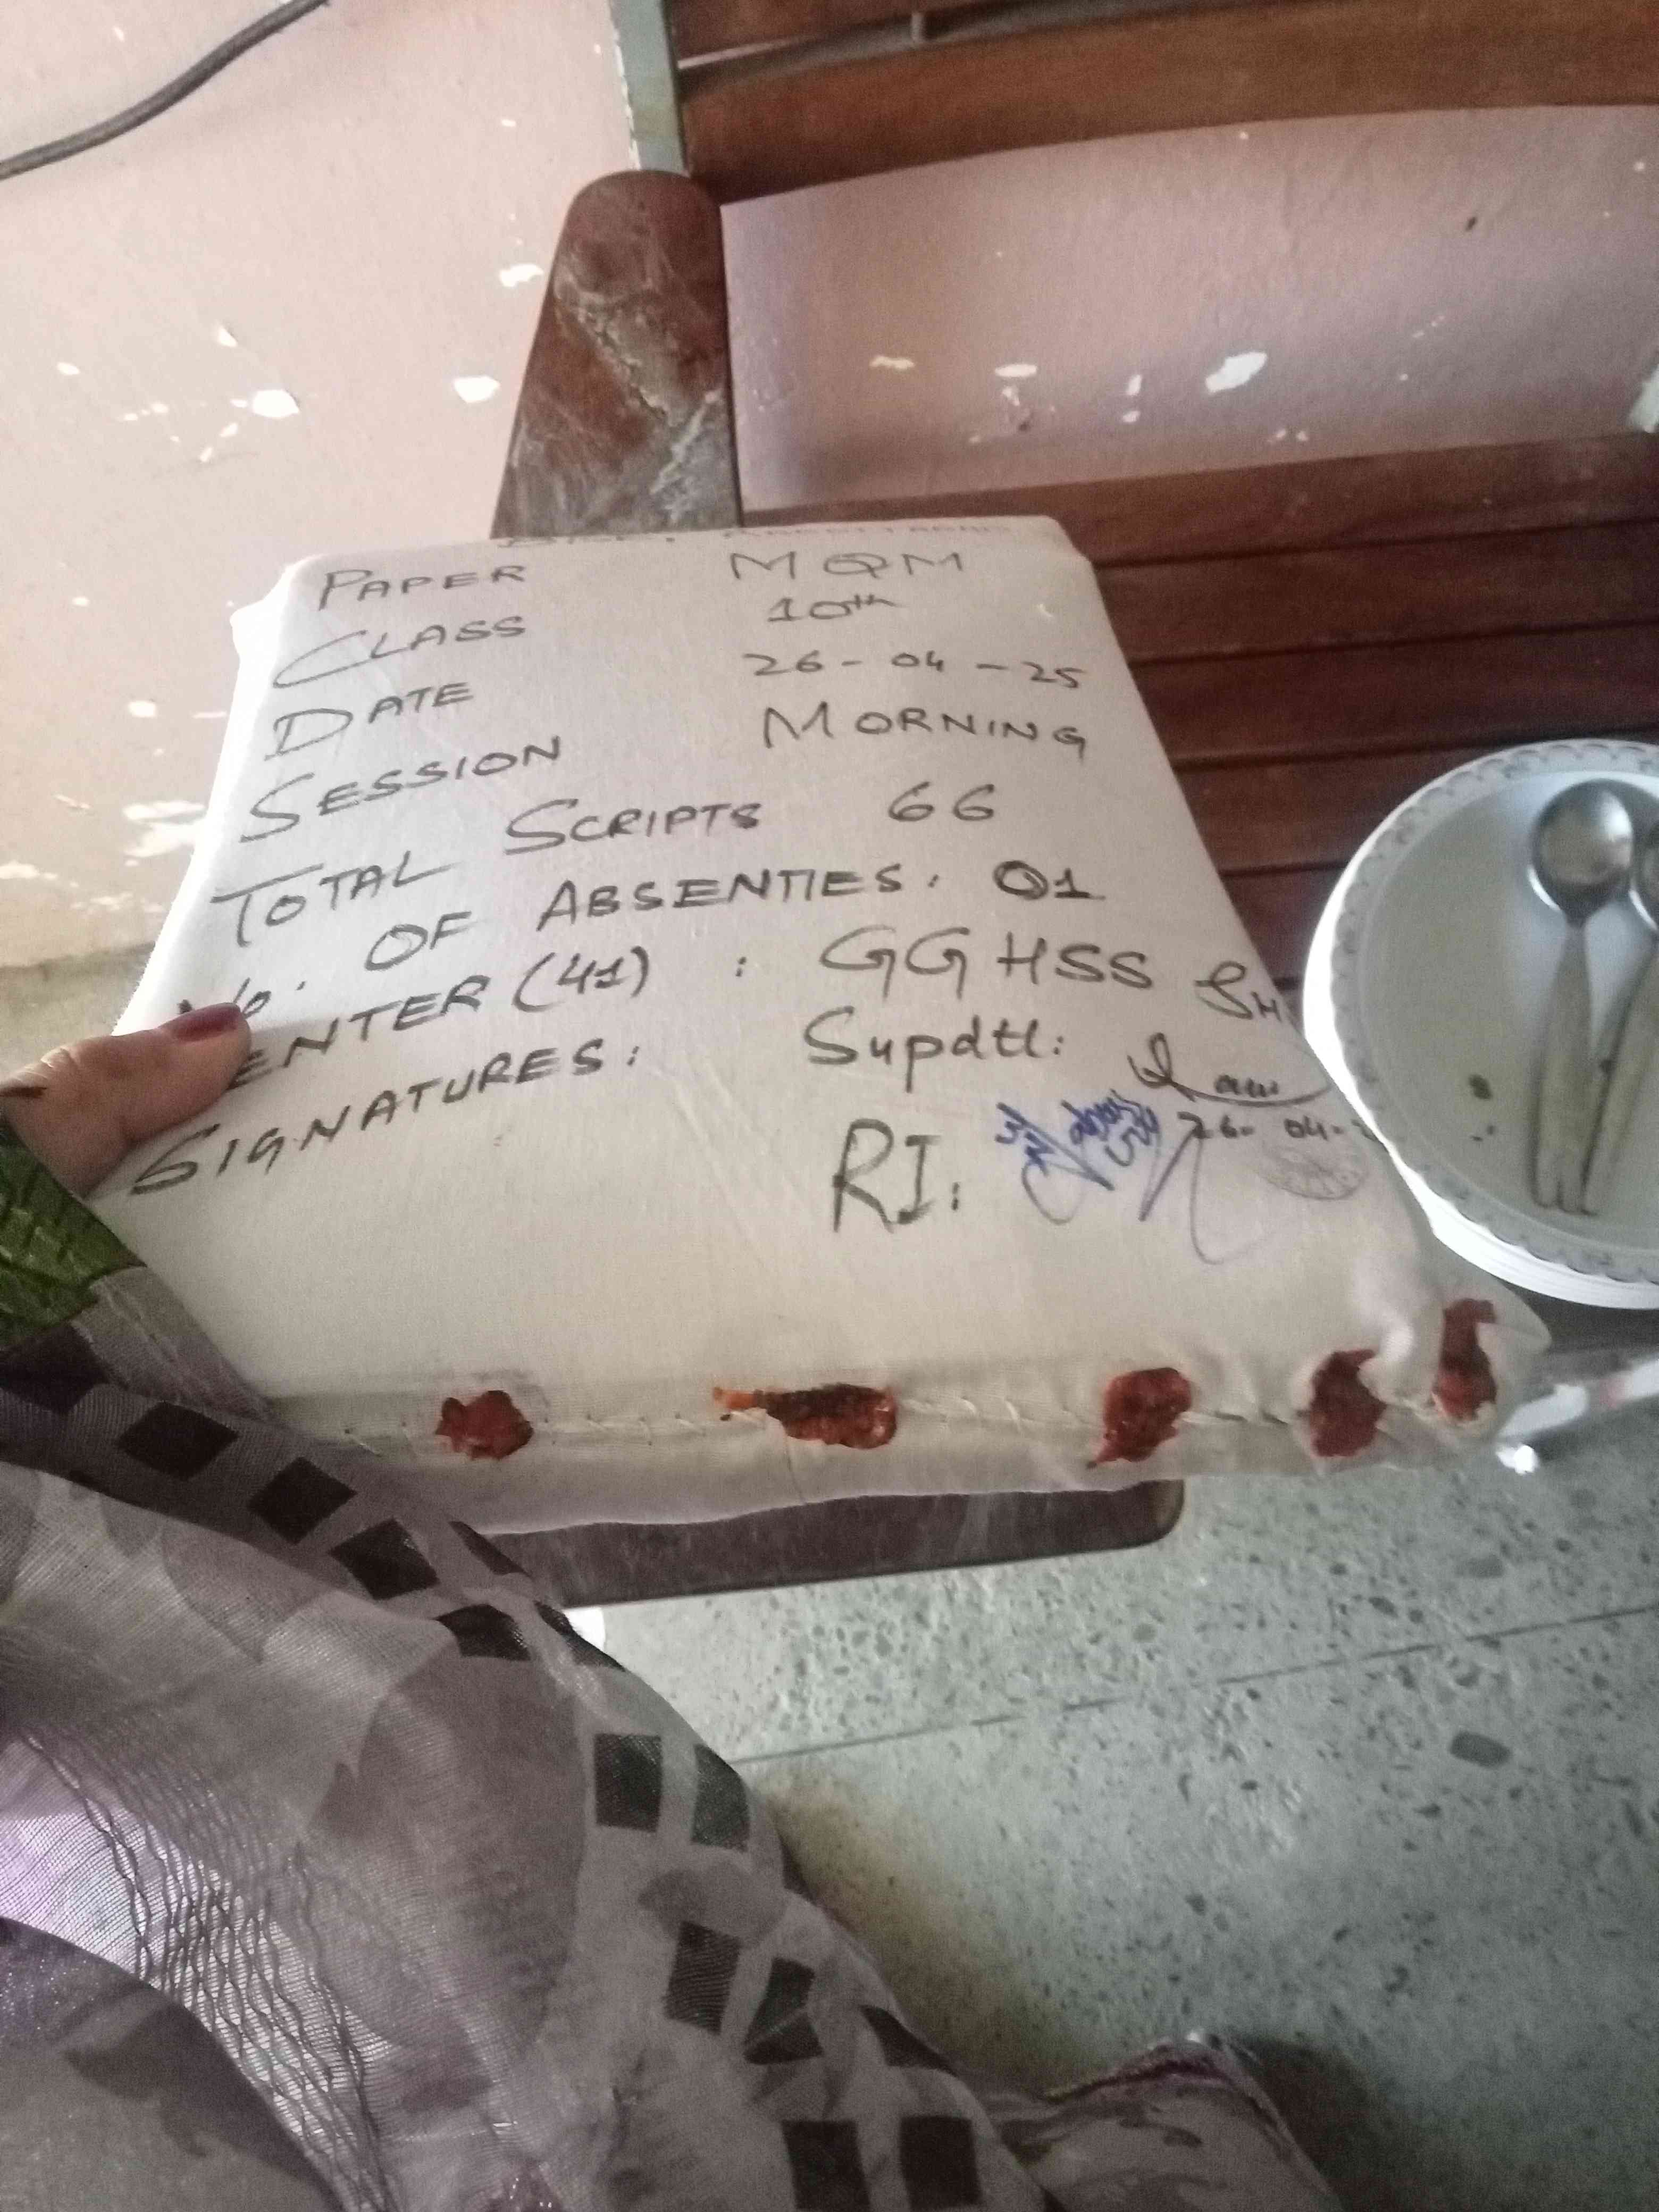 PAPER MQM
CLASS 10th
DATE 26-04-25
SESSION MORNING
TOTAL SCRIPTS 66
No. OF ABSENTIES. 01
ENTER (41) : GGHSS SH
SIGNATURES: Supdtt:
26-04-
RI: